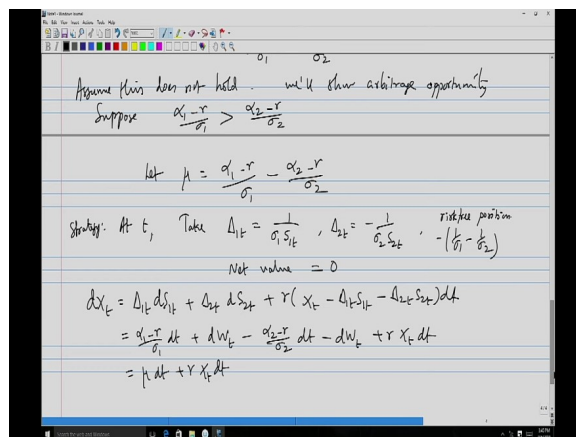 σ₁ σ₂
Assume this does not hold. we'll show arbitrage opportunity
Suppose (α₁ - r)/σ₁ > (α₂ - r)/σ₂
Let μ = (α₁ - r)/σ₁ - (α₂ - r)/σ₂
Strategy: At t, Take Δ₁ₜ = 1/(σ₁ S₁ₜ), Δ₂ₜ = - 1/(σ₂ S₂ₜ), riskfree position -(1/σ₁ - 1/σ₂)
Net value = 0
dXₜ = Δ₁ₜ dS₁ₜ + Δ₂ₜ dS₂ₜ + r(Xₜ - Δ₁ₜS₁ₜ - Δ₂ₜS₂ₜ)dt
= (α₁ - r)/σ₁ dt + dWₜ - (α₂ - r)/σ₂ dt - dWₜ + r Xₜ dt
= μ dt + r Xₜ dt